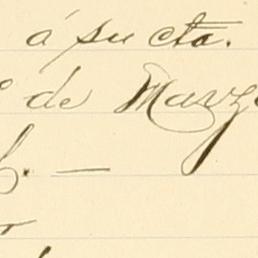 á su cta.
de Marzo